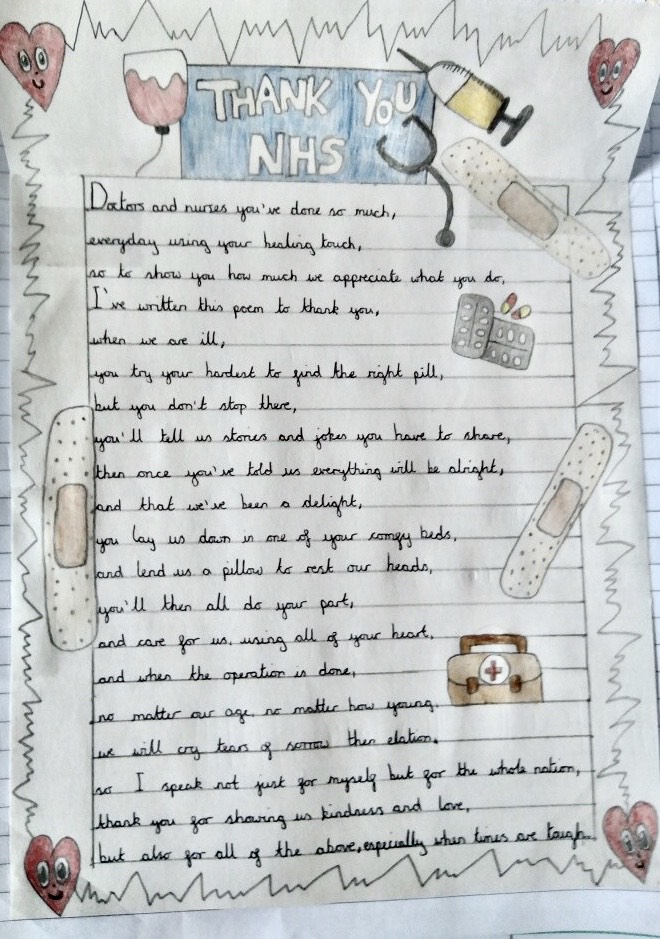 THANK YOU
NHS
Doctors and nurses you've done so much,
everyday using your healing touch,
so to show you how much we appreciate what you do,
I've written this poem to thank you,
when we are ill,
you try your hardest to find the right pill,
but you don't stop there,
you'll tell us stories and jokes you have to share,
then once you've told us everything will be alright,
and that we've been a delight,
you lay us down in one of your comfy beds,
and lend us a pillow to rest our heads,
you'll then all do your part,
and care for us, using all of your heart,
and when the operation is done,
no matter our age, no matter how young.
we will cry tears of sorrow then elation.
so I speak not just for myself but for the whole nation,
thank you for showing us kindness and love,
but also for all of the above, especially when times are tough.